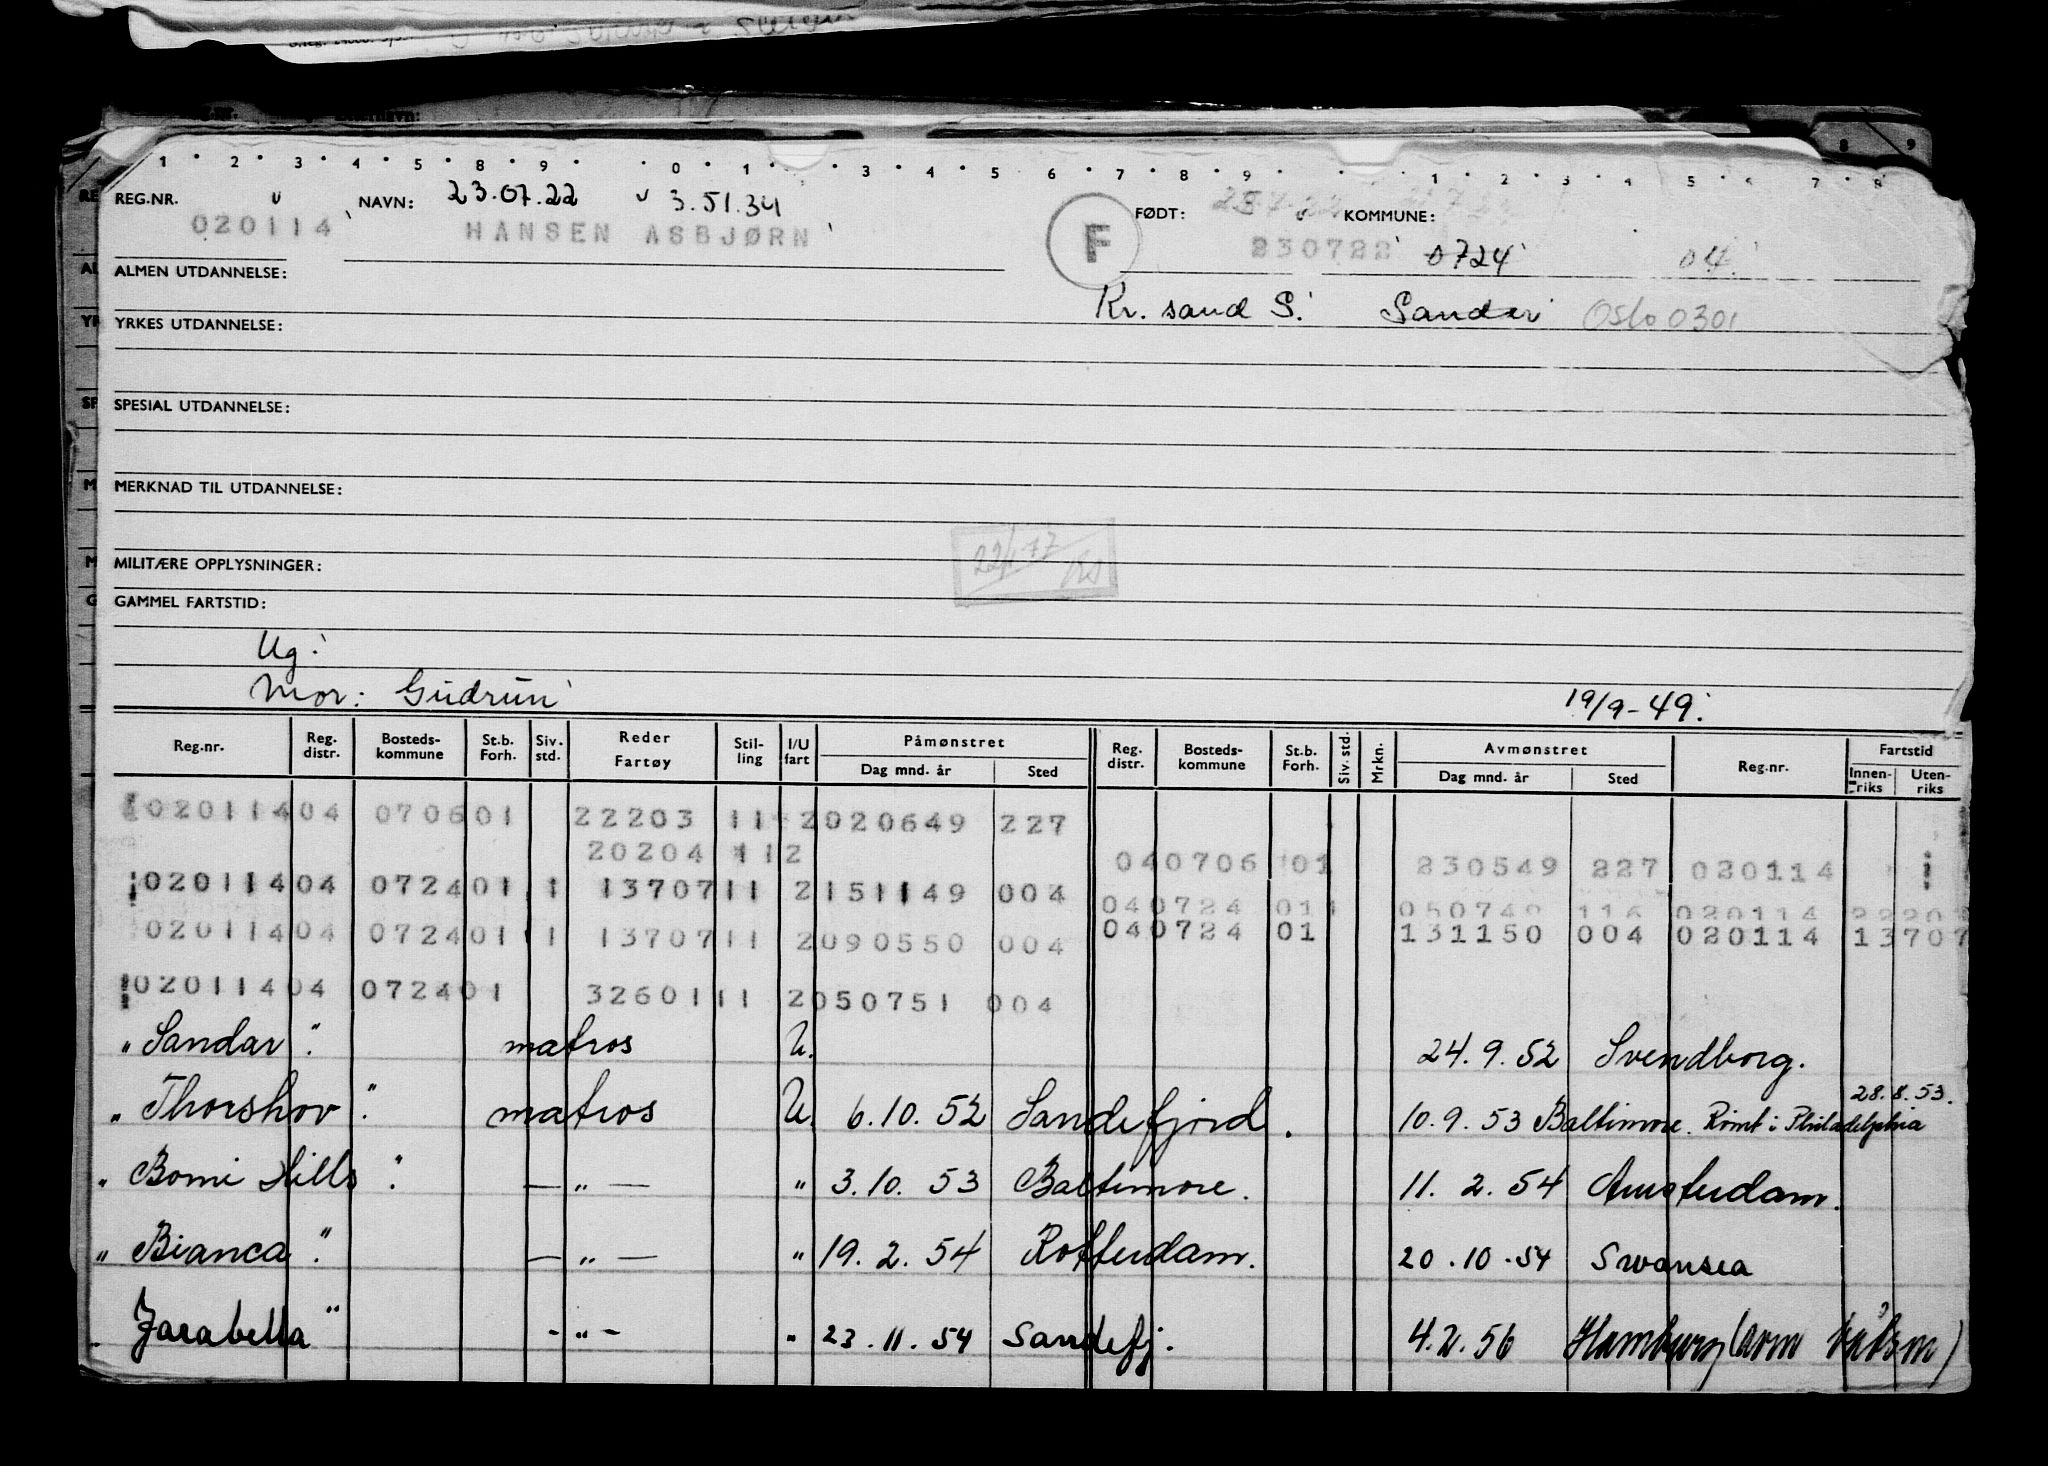 1 2 3 4 5 8 9 0 1 3 4 5 6 7 8 9 1 2 3 4 5 6 7 8
REG.NR. NAVN: 23.07.22 3.51.34 FØDT: KOMMUNE:
020114 HANSEN ASBJØRN F 230722 0724 04
ALMEN UTDANNELSE:
Kr. sand S. Sander Oslo 0301
YRKES UTDANNELSE:
SPESIAL UTDANNELSE:
MERKNAD TIL UTDANNELSE:
MILITÆRE OPPLYSNINGER:
GAMMEL FARTSTID:
Ug.
Mor: Gudrun 19/9-49.
Reg.nr. Reg. distr. Bosteds-kommune St.b. Forh. Siv. std. Reder Fartøy Stil-ling I/U fart Påmønstret Dag mnd. år Sted Reg. distr. Bosteds-kommune St.b. Forh. Siv. std. Mrkn. Avmønstret Dag mnd. år Sted Reg.nr. Fartstid Innen-riks Uten-riks
020114 04 0706 01 22203 11 2 020649 227
20204 112 04 0706 01 230549 227 020114
020114 04 0724 01 1 13707 11 2 151149 004 04 0724 01 1 050749 116 020114
020114 04 0724 01 1 13707 11 2 090550 004 04 0724 01 131150 004 020114 13707
020114 04 0724 01 32601 11 2 050751 004
" Sandar " matros U. 24.9.52 Svendborg.
" Thorshov " matros U. 6.10.52 Sandefjord. 10.9.53 Baltimore. Rømt i Philadelphia 28.8.53.
" Bomi Hills " — " — " 3.10.53 Baltimore. 11.2.54 Amsterdam.
" Bianca " — " — " 19.2.54 Rotterdam. 20.10.54 Swansea
" Jarabella " - " - " 23.11.54 Sandefj. 4.2.56 Hamburg (avm